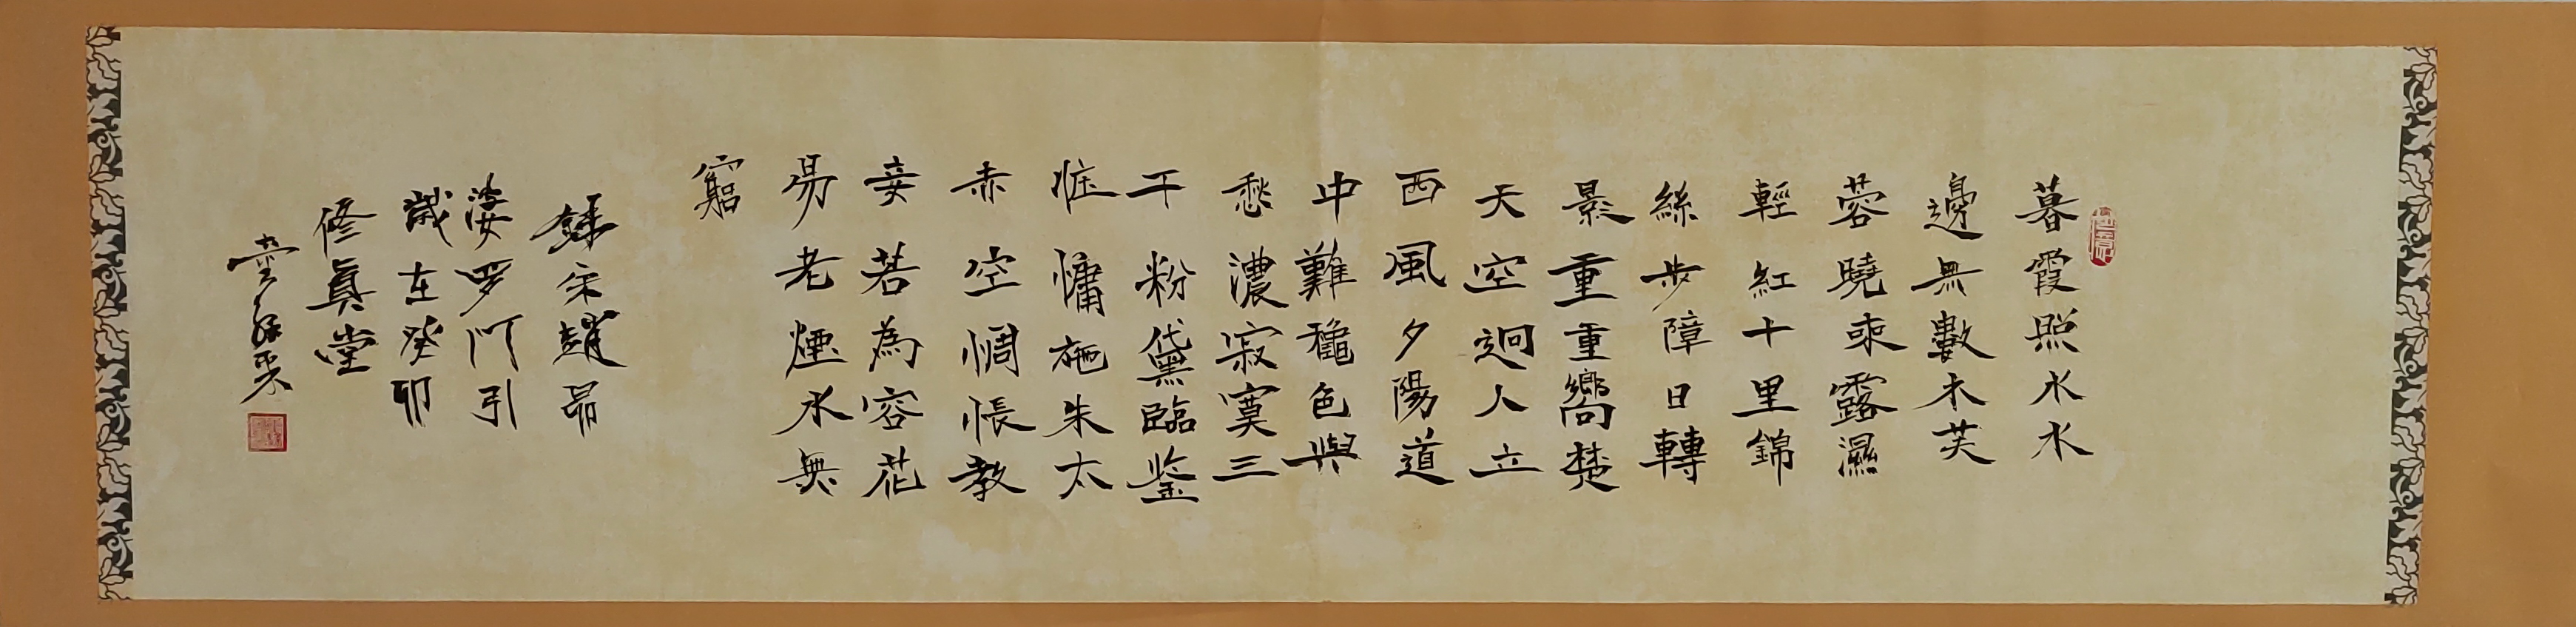 暮霞照水水
邊無數木芙
蓉曉來露濕
輕紅十里錦
絲步障日轉
景重重嚮楚
天空迥人立
西風夕陽道
中難穐色與
愁濃寂寞三
千粉黛臨鉴
妝慵施朱太
赤空惆悵教
妾若為容花
易老煙水無
窮
錄宋趙昂
婆罗门引
歲在癸卯
修真堂